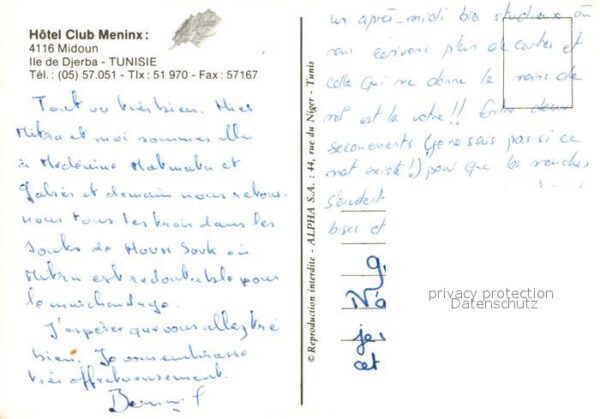 Hôtel Club Meninx :
4116 Midoun
Ile de Djerba - TUNISIE
Tél. : (05) 57.051 - Tlx : 51 970 - Fax : 57167
Tout va très bien. Hier
Mitra et moi sommes allés
à Médenine Matmata et
Gabès et demain nous retour-
nons tous les trois dans les
Souks de Houmt Souk où
Mitra est redoutable pour
le marchandage.
J'espère que vous allez très
bien. Je vous embrasse
très affectueusement.
© Reproduction interdite - ALPHA S.A. : 44, rue du Niger - Tunis
un après-midi bien studieux où
nous écrivons plein de cartes et
celle qui me donne le moins de
mot est la vôtre !! Entre deux
secouements (je ne sais pas si ce
mot existe !) pour que les mouches
s'endort
bises et
No
je
cet
privacy protection
Datenschutz